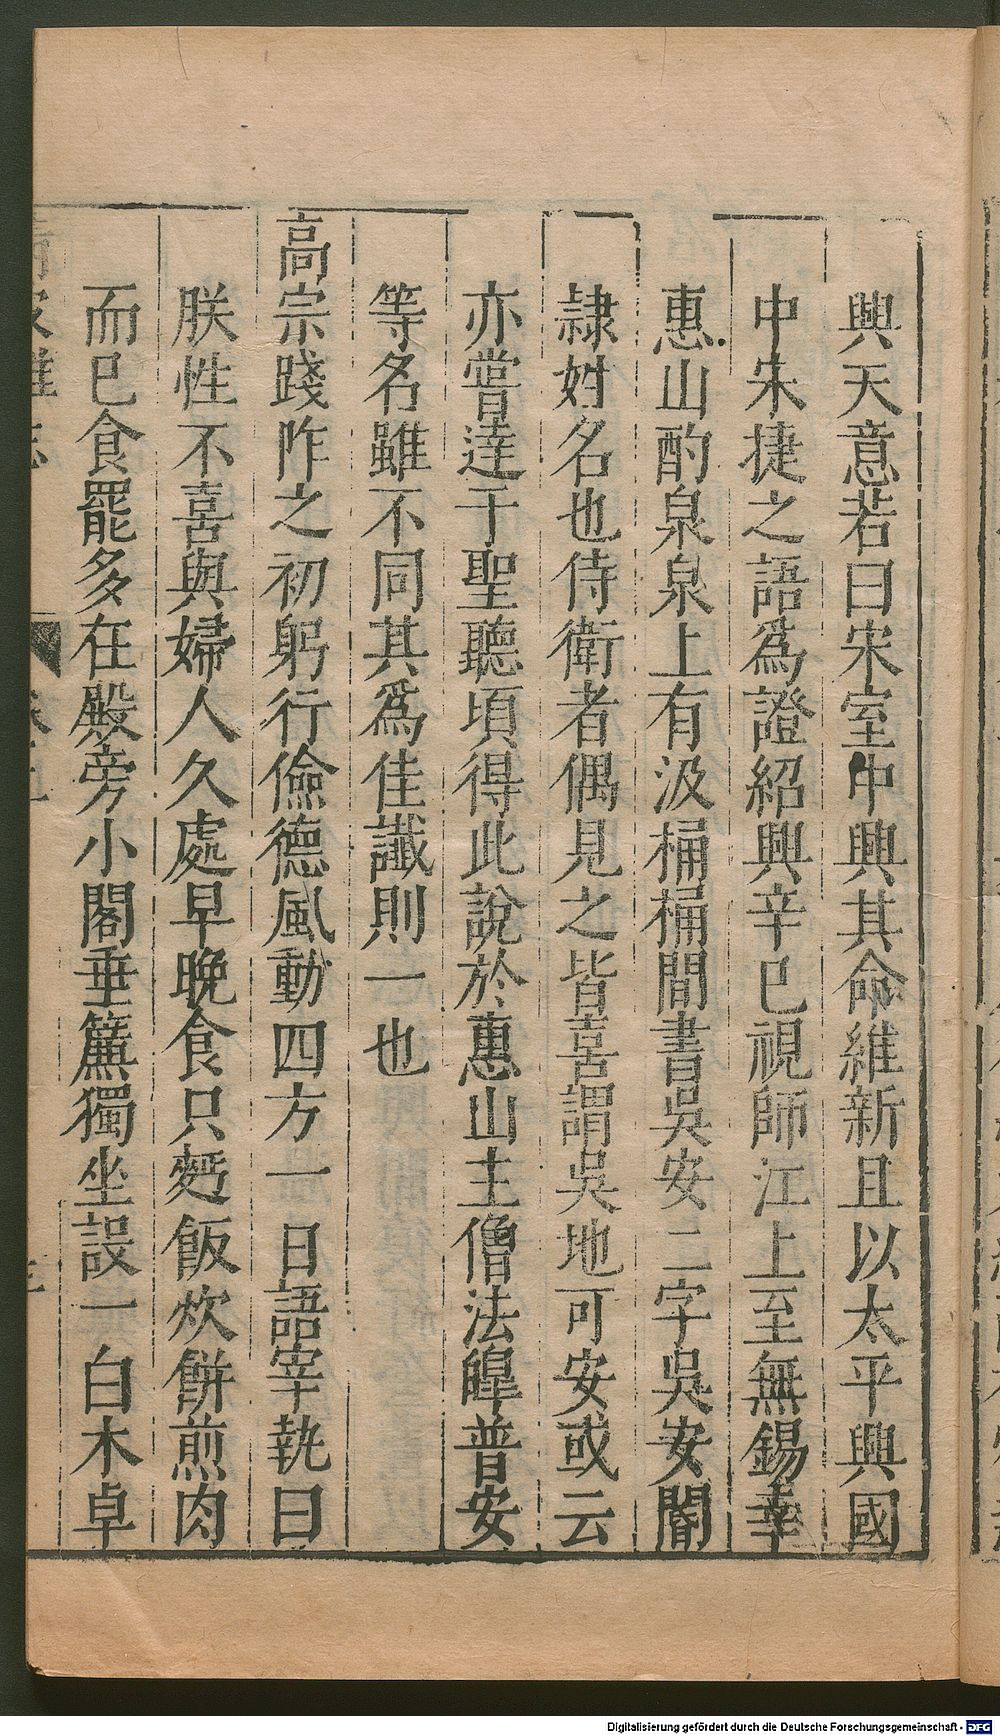 興天意若曰宋室中興其命維新且以太平興國
中宋捷之語爲證紹興辛巳視師江上至無錫幸
惠山酌泉泉上有汲桶桶間書吳安二字吳安閽
隷姓名也侍衛者偶見之皆喜謂吳地可安或云
亦嘗達于聖聽頃得此說於惠山主僧法皥普安
等名雖不同其爲佳讖則一也
高宗踐阼之初躬行儉德風動四方一日語宰執曰
朕性不喜與婦人久處早晚食只麪飯炊餅煎肉
而已食罷多在殿旁小閣垂簾獨坐設一白木卓
Digitalisierung gefördert durch die Deutsche Forschungsgemeinschaft - DFG